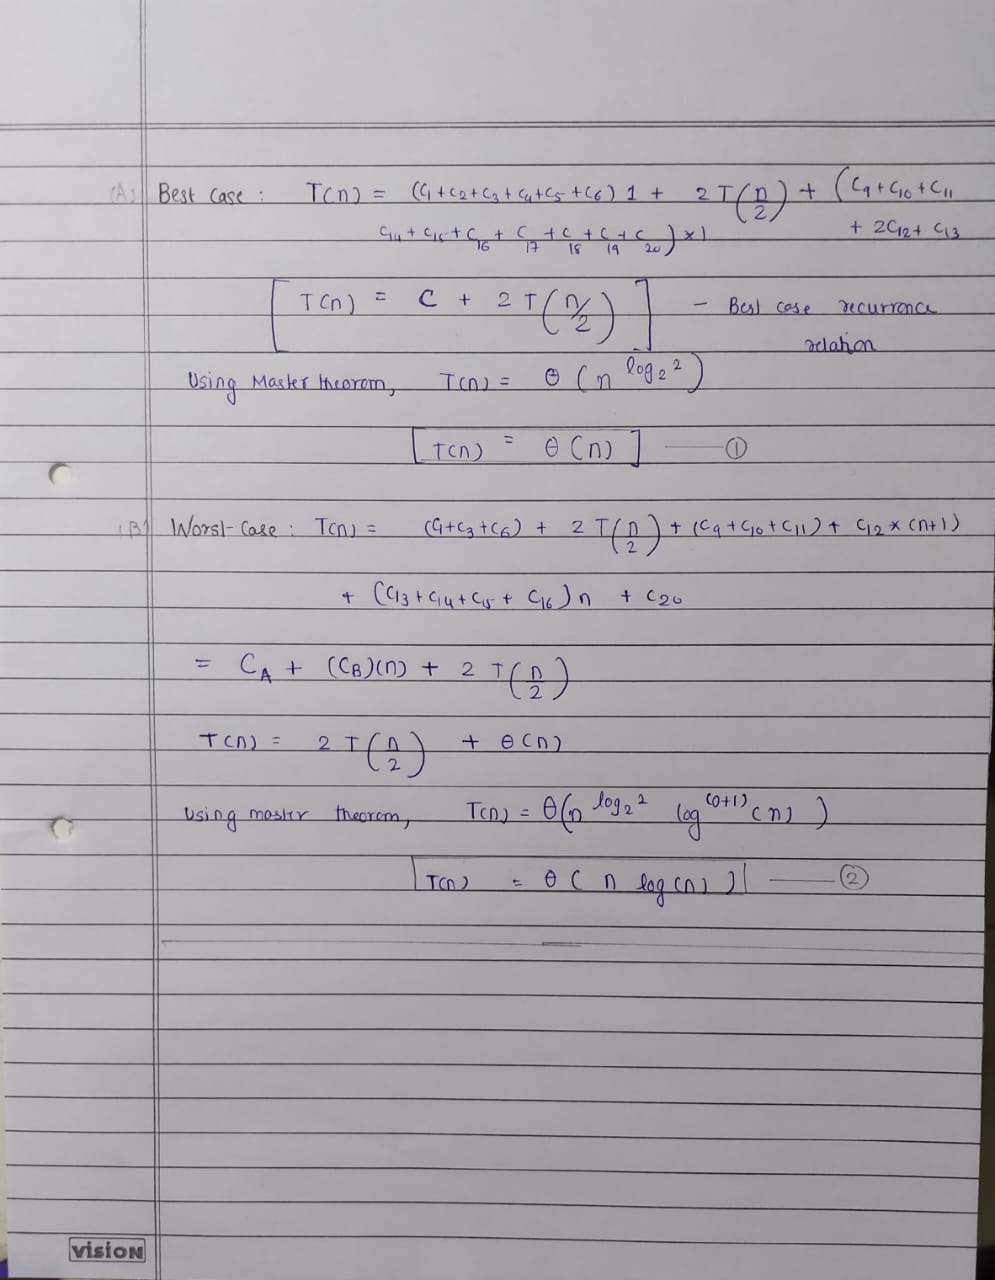 (A) Best Case : T(n) = (C1+C2+C3+C4+C5+C6) 1 + 2T(n/2) + (C9+C10+C11
C14+C15+C16+C17+C18+C19+C20) × 1 + 2C12+C13
[T(n) = C + 2T(n/2)] – Best case recurrence
relation
Using Master theorem, T(n) = θ(n^log2 2)
[T(n) = θ(n)] — ①
(B) Worst-Case : T(n) = (C1+C3+C6) + 2T(n/2) + (C9+C10+C11) + C12 × (n+1)
+ (C13+C14+C15+C16)n + C20
= CA + (CB)(n) + 2T(n/2)
T(n) = 2T(n/2) + θ(n)
Using master theorem, T(n) = θ(n^log2 2 log^(0+1)(n))
T(n) = θ(n log(n)) — ②
vision